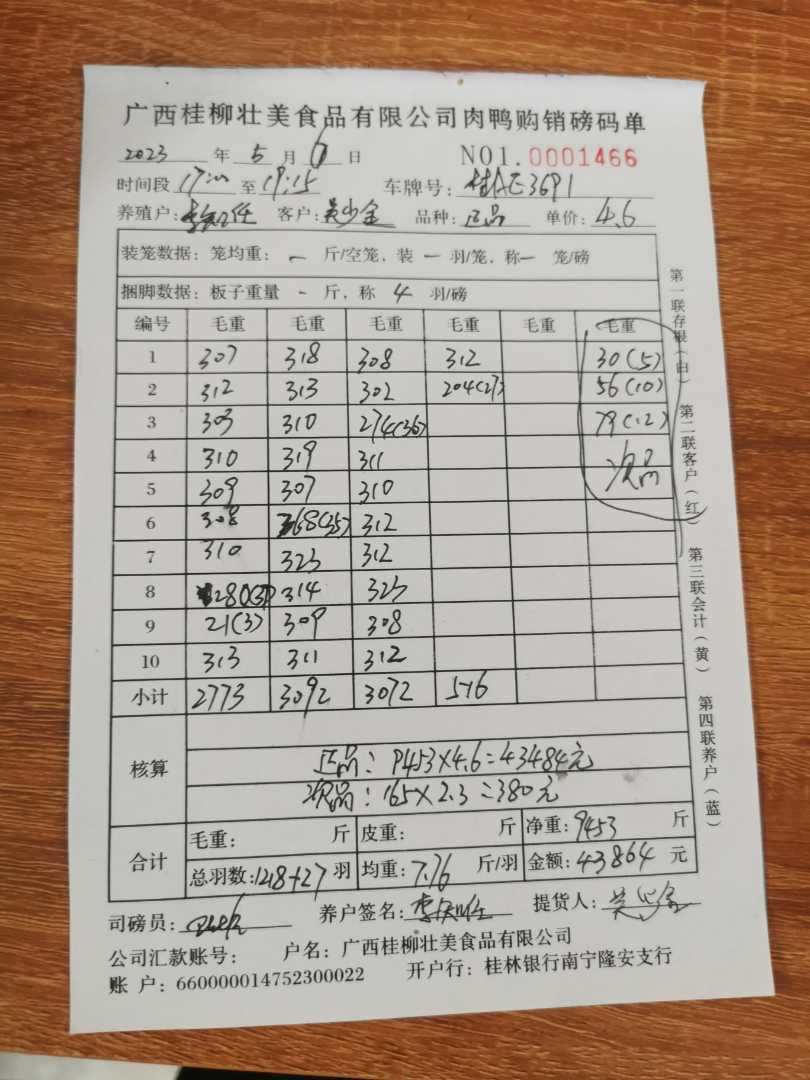 广西桂柳壮美食品有限公司肉鸭购销磅码单
2023 年 5 月 6 日 NO1.0001466
时间段 17:00 至 19:15 车牌号: 桂AE3691
养殖户: 李 任 客户: 吴少金 品种: 正品 单价: 4.6
装笼数据: 笼均重: - 斤/空笼, 装 - 羽/笼, 称 - 笼/磅
捆脚数据: 板子重量 - 斤, 称 4 羽/磅
编号 毛重 毛重 毛重 毛重 毛重 毛重
1 307 318 308 312 30(5)
2 312 313 302 204(27) 56(10)
3 303 310 274(36) 79(12)
4 310 319 311 次品
5 309 307 310
6 308 268(35) 312
7 310 323 312
8 280(37) 314 323
9 21(3) 309 308
10 313 311 312
小计 2773 3092 3072 516
核算
正品: 9453×4.6=43484元
次品: 165×2.3=380元
合计 毛重: 斤 皮重: 斤 净重: 9453 斤
总羽数: 1218+27 羽 均重: 7.76 斤/羽 金额: 43864 元
司磅员: 养户签名: 李 任 提货人: 吴少金
公司汇款账号: 户名: 广西桂柳壮美食品有限公司
账 户: 660000014752300022 开户行: 桂林银行南宁隆安支行
第一联存根(白)
第二联客户(红)
第三联会计(黄)
第四联养户(蓝)